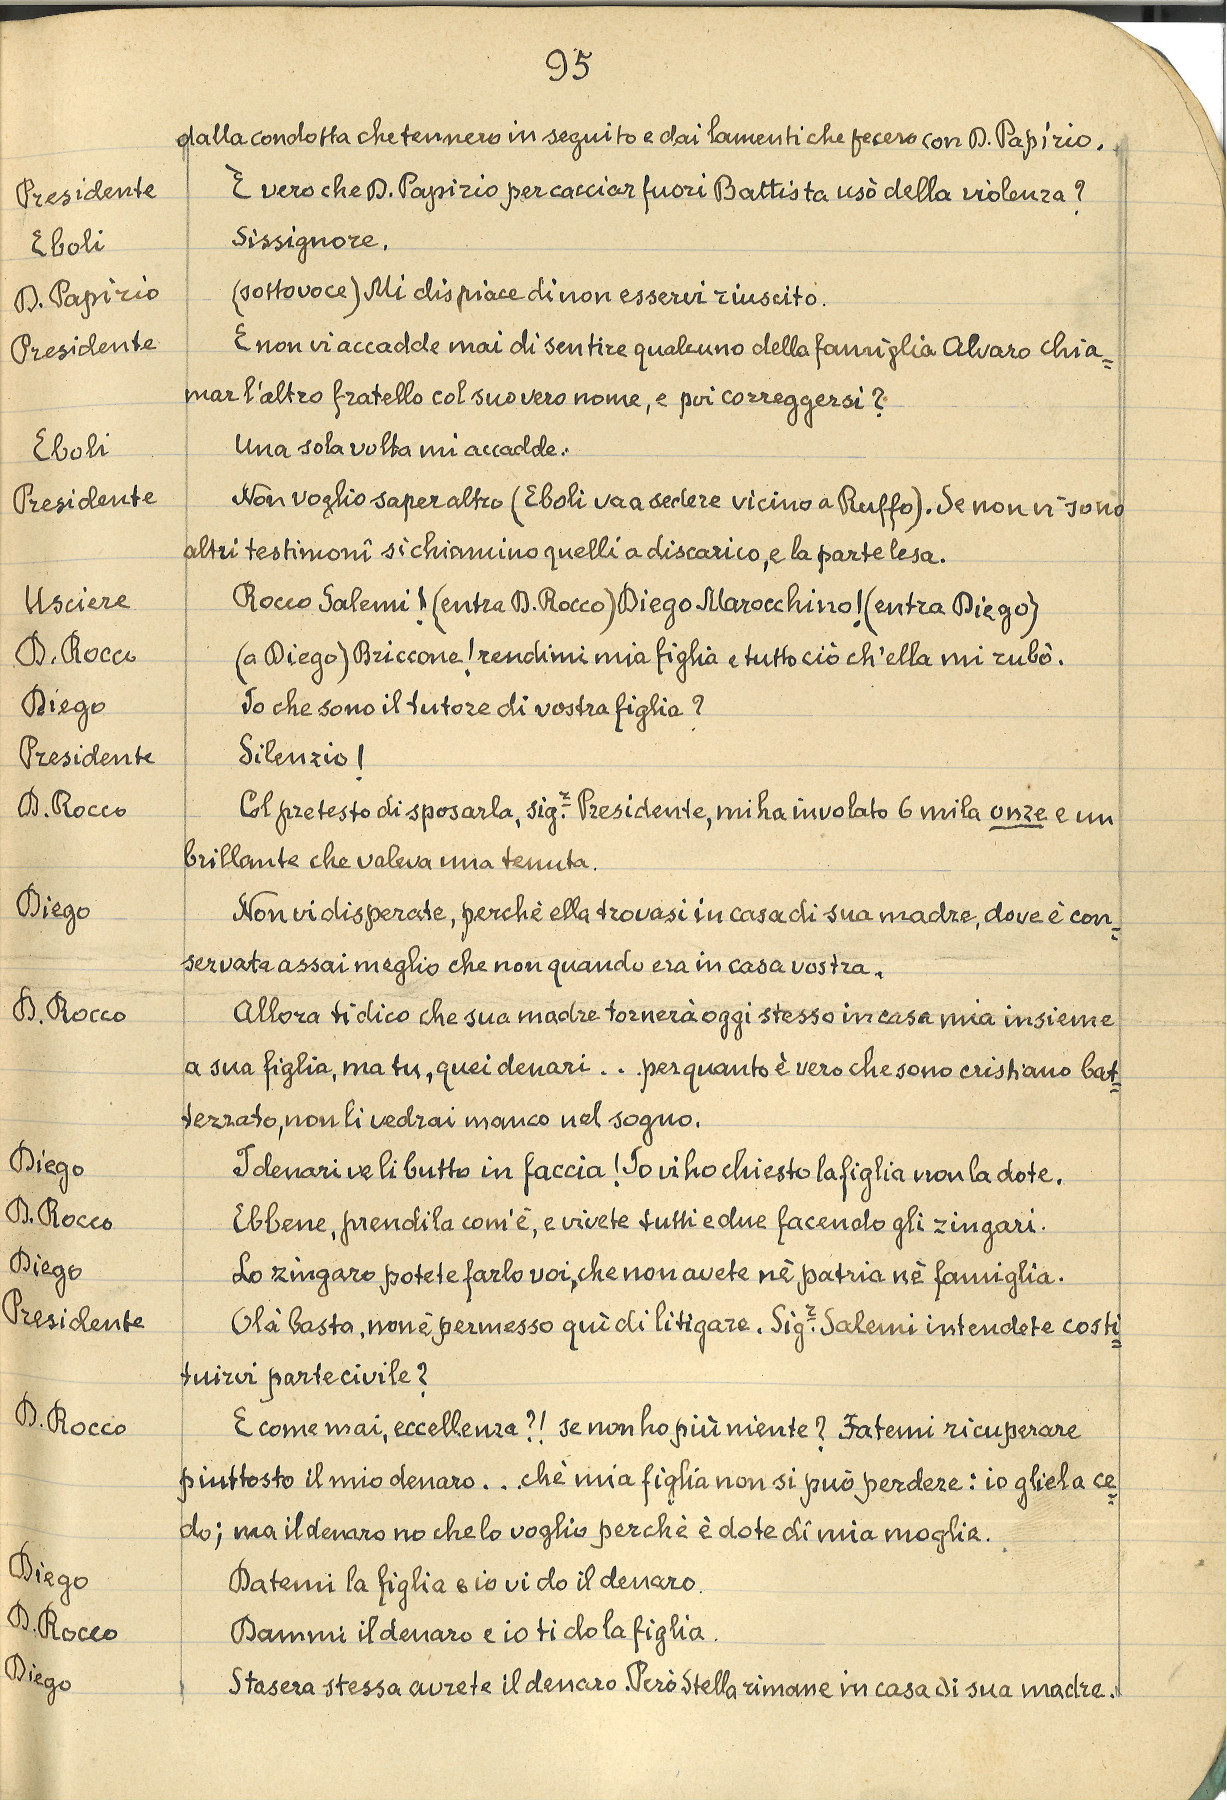 95
dalla condotta che tennero in seguito e dai lamenti che fecero con D. Papirio.
Presidente È vero che D. Papirio per cacciar fuori Battista usò della violenza?
Eboli Sissignore.
D. Papirio (sottovoce) Mi dispiace di non esservi riuscito.
Presidente E non vi accadde mai di sentire qualcuno della famiglia Alvaro chia=
mar l'altro fratello col suo vero nome, e poi correggersi?
Eboli Una sola volta mi accadde.
Presidente Non voglio saper altro (Eboli va a sedere vicino a Ruffo). Se non vi sono
altri testimonî si chiamino quelli a discarico, e la parte lesa.
Usciere Rocco Salemi! (entra D. Rocco) Diego Marocchino! (entra Diego)
D. Rocco (a Diego) Briccone! rendimi mia figlia e tutto ciò ch'ella mi rubò.
Diego Io che sono il tutore di vostra figlia?
Presidente Silenzio!
D. Rocco Col pretesto di sposarla, sig.r Presidente, mi ha involato 6 mila onze e un
brillante che valeva una tenuta.
Diego Non vi disperate, perchè ella trovasi in casa di sua madre, dove è con=
servata assai meglio che non quando era in casa vostra.
D. Rocco Allora ti dico che sua madre tornerà oggi stesso in casa mia insieme
a sua figlia, ma tu, quei denari . . . per quanto è vero che sono cristiano bat=
tezzato, non li vedrai manco nel sogno.
Diego I denari ve li butto in faccia! Io vi ho chiesto la figlia non la dote.
D. Rocco Ebbene, prendila com'è, e vivete tutti e due facendo gli zingari.
Diego Lo zingaro potete farlo voi, che non avete nè patria nè famiglia.
Presidente Olà basta, non è permesso quì di litigare. Sig.r Salemi intendete costi=
tuirvi parte civile?
D. Rocco E come mai, eccellenza?! se non ho più niente? Fatemi ricuperare
piuttosto il mio denaro . . . chè mia figlia non si può perdere: io gliela ce=
do; ma il denaro no che lo voglio perchè è dote di mia moglie.
Diego Datemi la figlia e io vi do il denaro.
D. Rocco Dammi il denaro e io ti do la figlia.
Diego Stasera stessa avrete il denaro. Però Stella rimane in casa di sua madre.